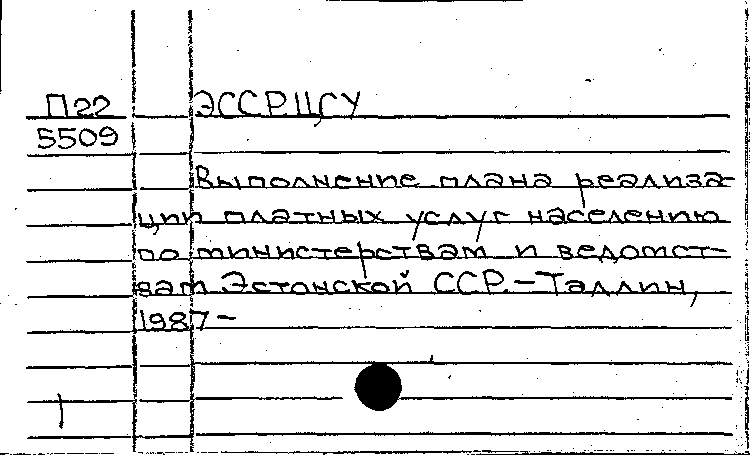 П22 ЭССР.ЦСУ
5509
Выполнение плана реализа-
ции платных услуг населению
по министерствам и ведомст-
вам Эстонской ССР.-Таллин,
1987-